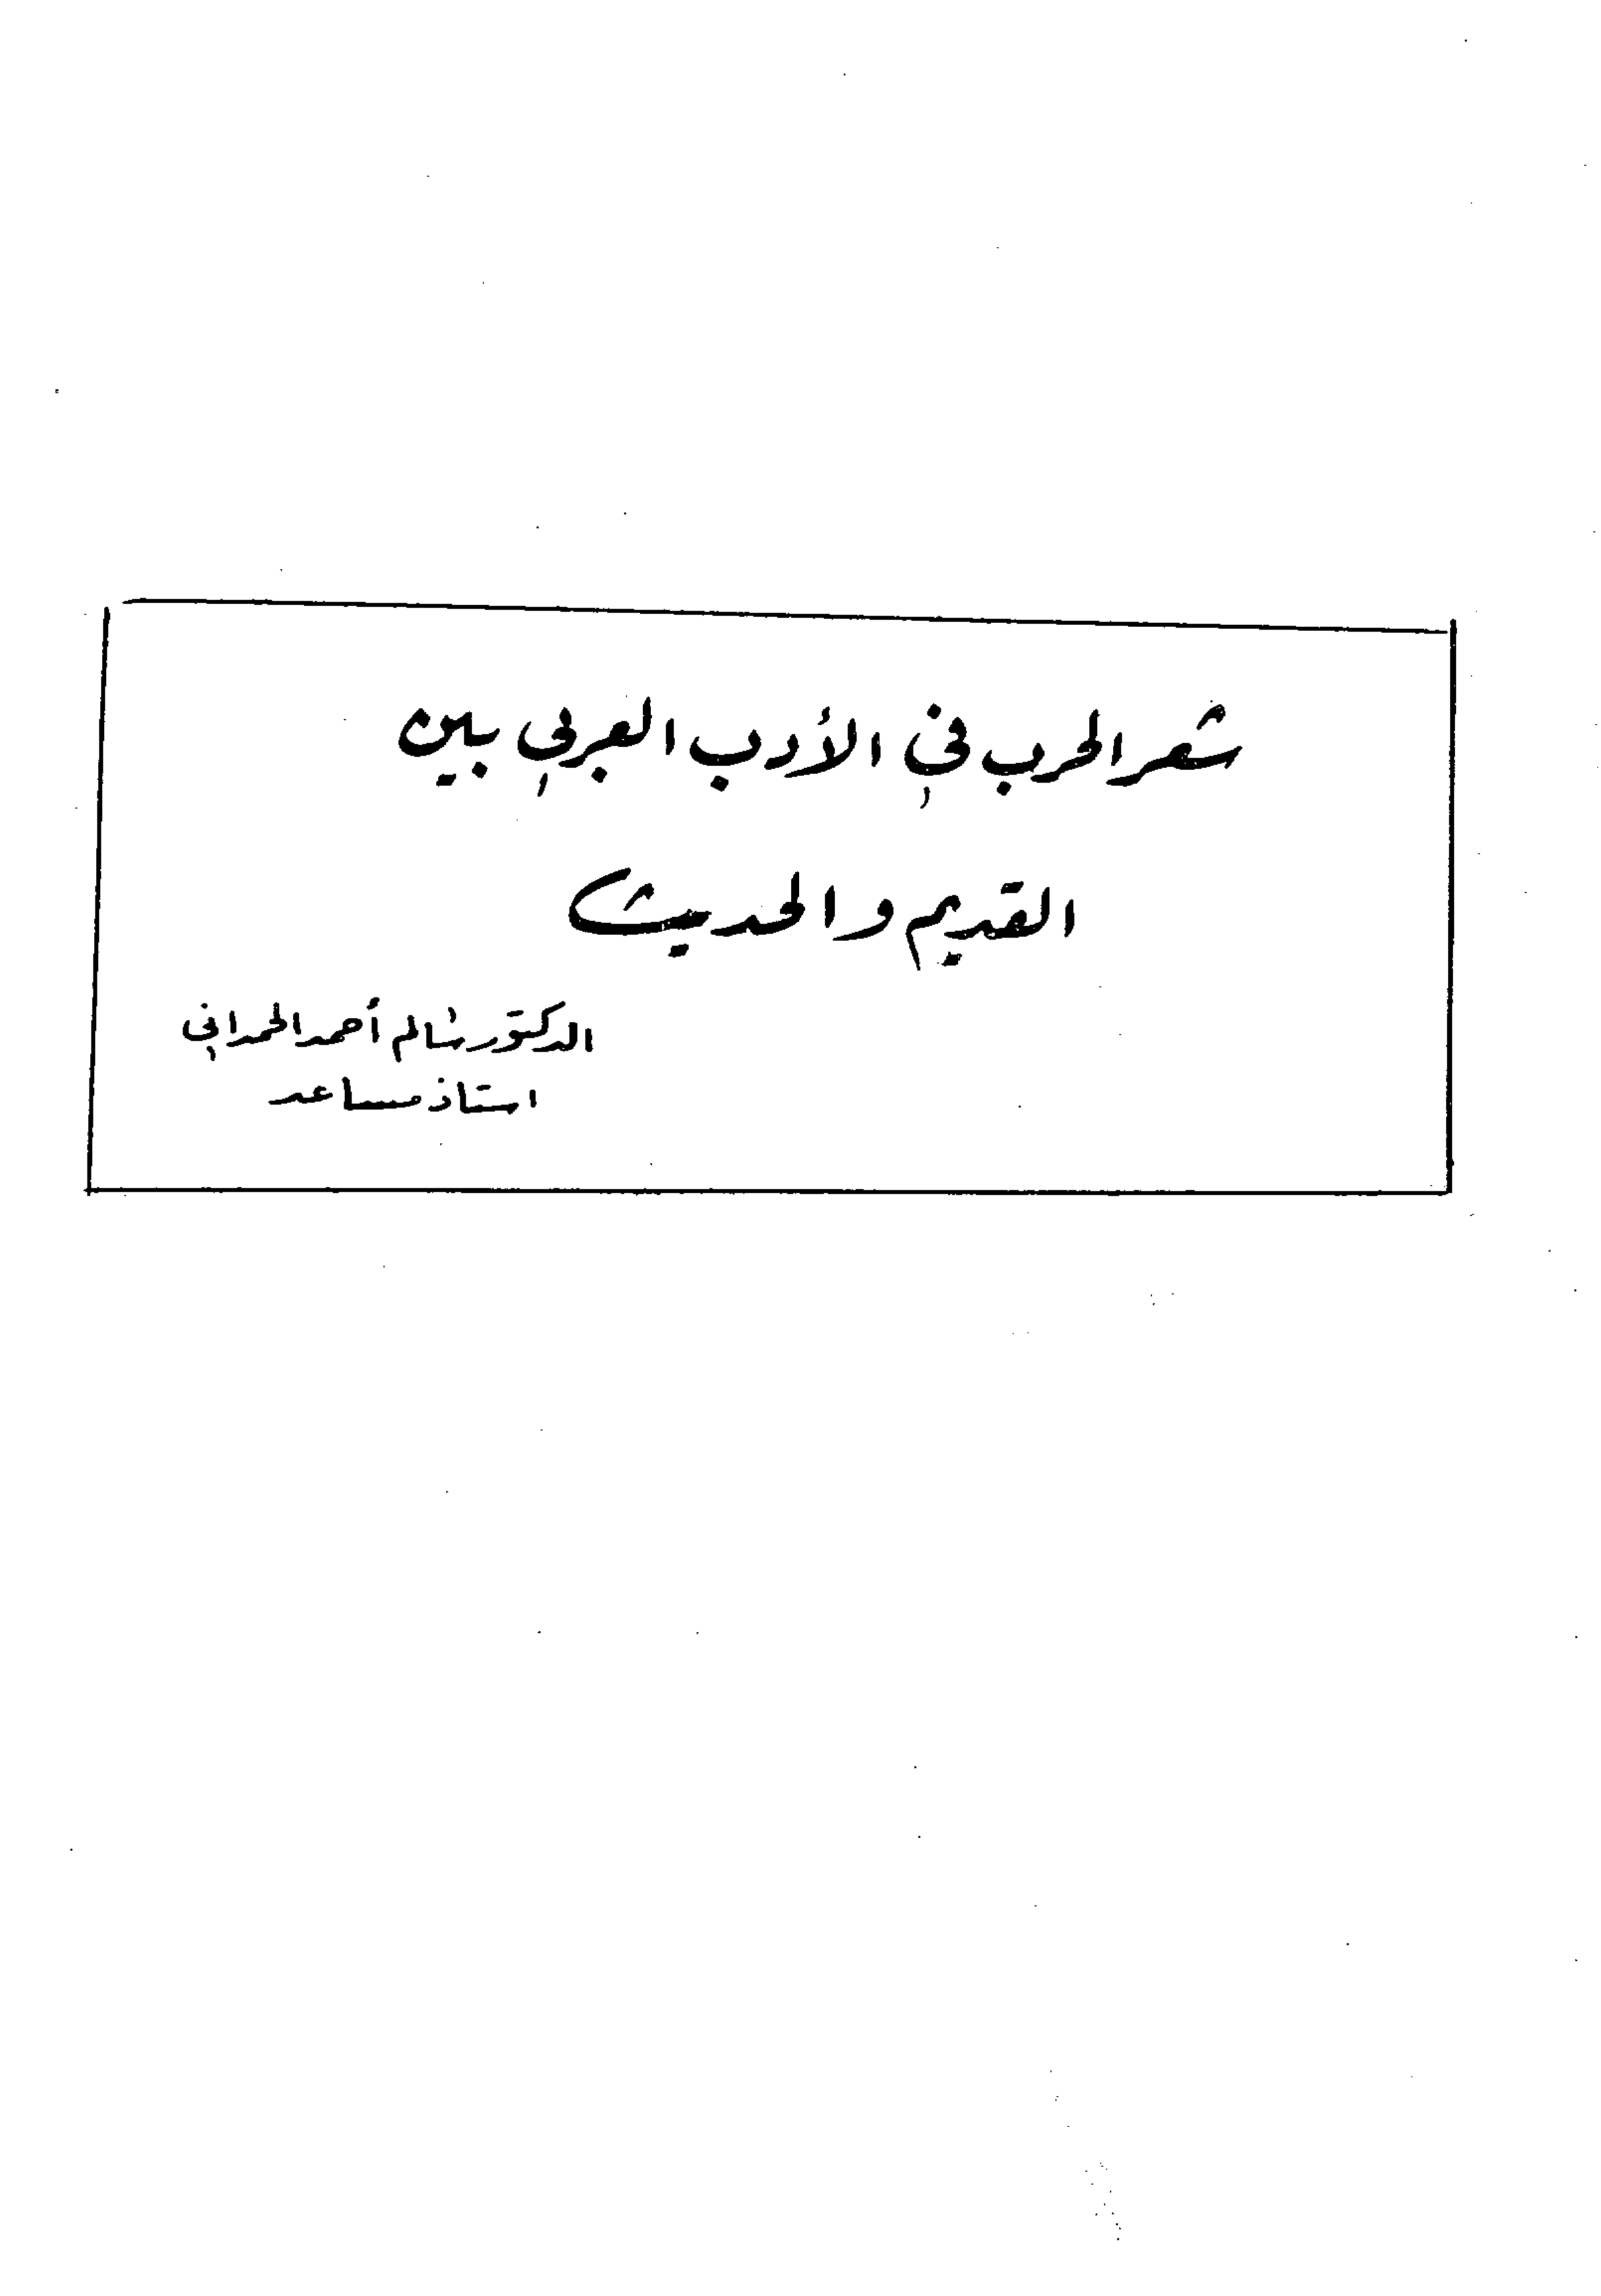 شعر الحرب في الأدب العربي بين
القديم والحديث
الدكتور سالم أحمد الحمداني
استاذ مساعد